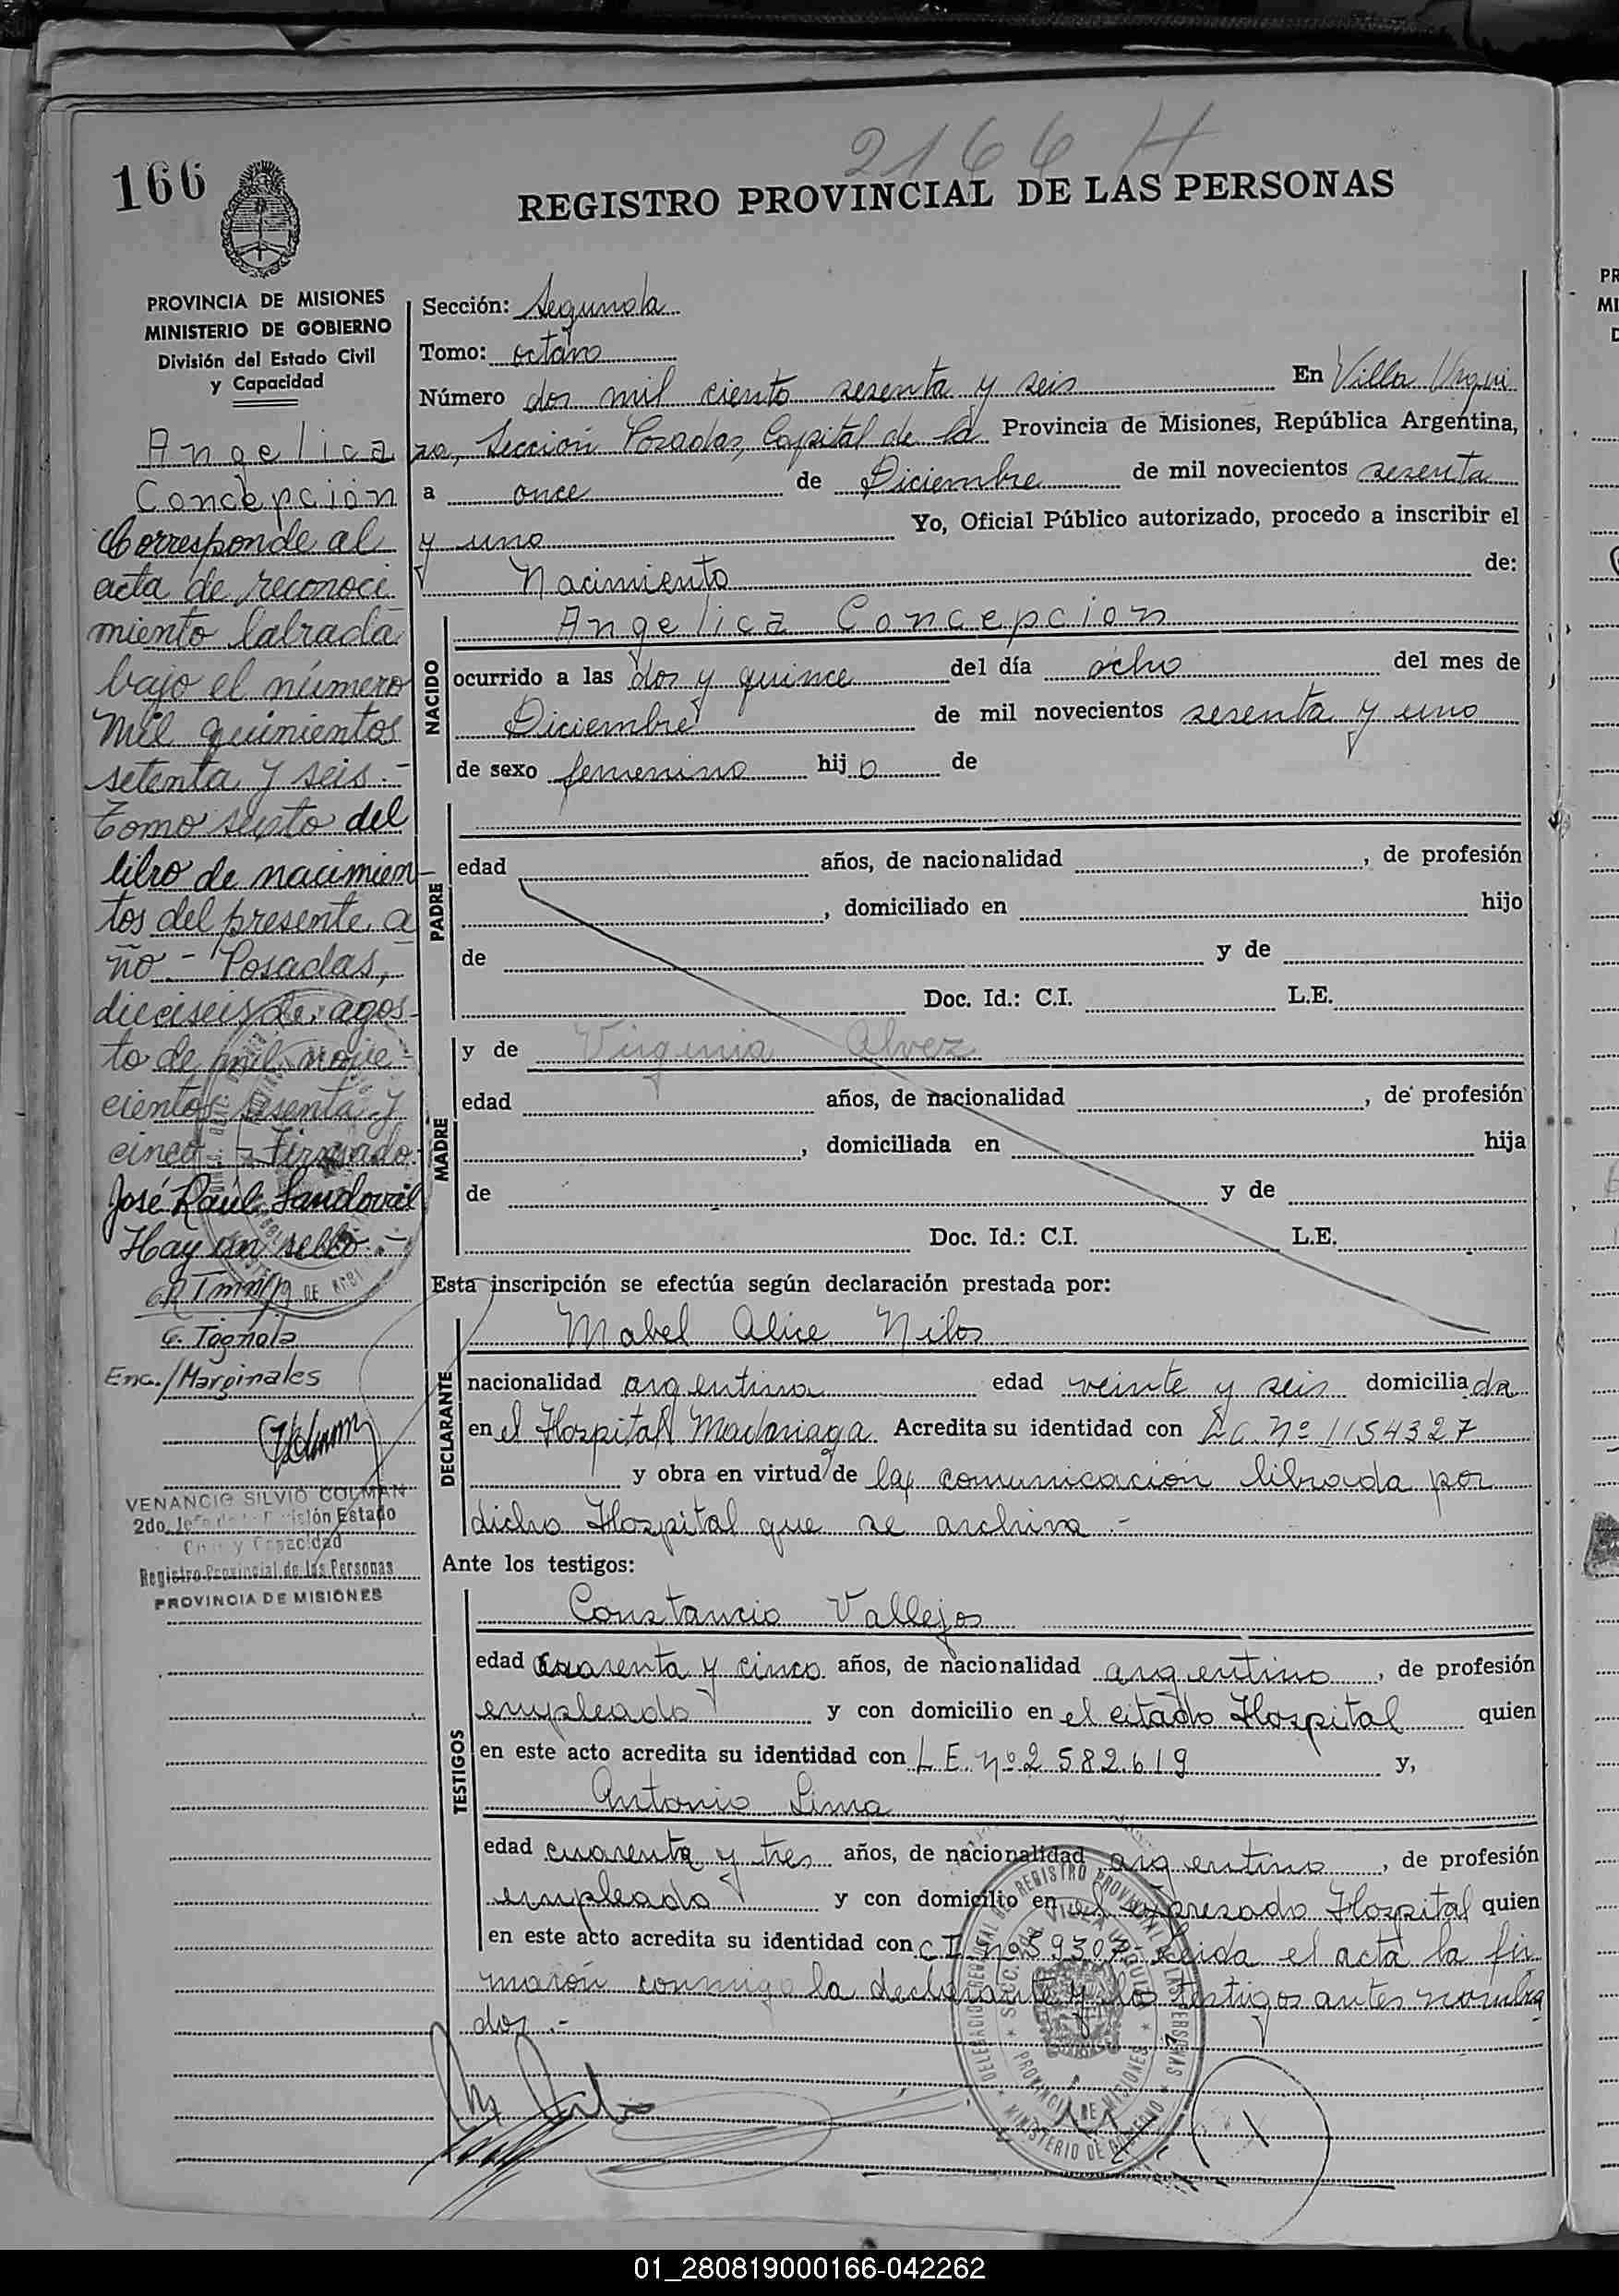 2166 H
166
REGISTRO PROVINCIAL DE LAS PERSONAS
PROVINCIA DE MISIONES
MINISTERIO DE GOBIERNO
División del Estado Civil
y Capacidad
Angelica
Concepción
Corresponde al
acta de reconoci
miento labrada
bajo el número
mil quinientos
setenta y seis.-
Tomo sexto del
libro de nacimien-
tos del presente a
ño.- Posadas,
dieciseis de agos-
to de mil nove-
cientos sesenta y
cinco.- Firmado.
José Raúl Sandoval
Hay un sello.-
C. Tognola
Enc./Marginales
VENANCIO SILVIO COLMAN
2do. Jefe de la División Estado
Civil y Capacidad
Registro Provincial de las Personas
PROVINCIA DE MISIONES
Sección: Segunda
Tomo: octavo
Número dos mil ciento sesenta y seis En Villa Urqui
za, Sección Posadas, Capital de la Provincia de Misiones, República Argentina,
a once de Diciembre de mil novecientos sesenta
y uno Yo, Oficial Público autorizado, procedo a inscribir el
Nacimiento de:
NACIDO
Angelica Concepcion
ocurrido a las dos y quince del día ocho del mes de
Diciembre de mil novecientos sesenta y uno
de sexo femenino hij o de
PADRE
edad años, de nacionalidad , de profesión
, domiciliado en hijo
de y de
Doc. Id.: C.I. L.E.
MADRE
y de Virginia Alvez
edad años, de nacionalidad , de profesión
, domiciliada en hija
de y de
Doc. Id.: C.I. L.E.
Esta inscripción se efectúa según declaración prestada por:
DECLARANTE
Mabel Alice Nilos
nacionalidad argentina edad veinte y seis domiciliada
en el Hospital Madariaga Acredita su identidad con L.C. Nº 1154327
y obra en virtud de la comunicación librada por
dicho Hospital que se archiva.-
Ante los testigos:
TESTIGOS
Constancio Vallejos
edad cuarenta y cinco años, de nacionalidad argentino, de profesión
empleado y con domicilio en el citado Hospital quien
en este acto acredita su identidad con L.E. nº 2582.619 y,
Antonio Lima
edad cuarenta y tres años, de nacionalidad argentino, de profesión
empleado y con domicilio en el expresado Hospital quien
en este acto acredita su identidad con C.I. nº 59307- Leida el acta la fir
maron conmigo la declarante y los testigos antes nombra
dos.-
DELEGACION REGIONAL DEL REGISTRO PROVINCIAL DE LAS PERSONAS
SECC. 2da. VILLA URQUIZA
PROVINCIA DE MISIONES
MINISTERIO DE GOBIERNO
01_280819000166-042262